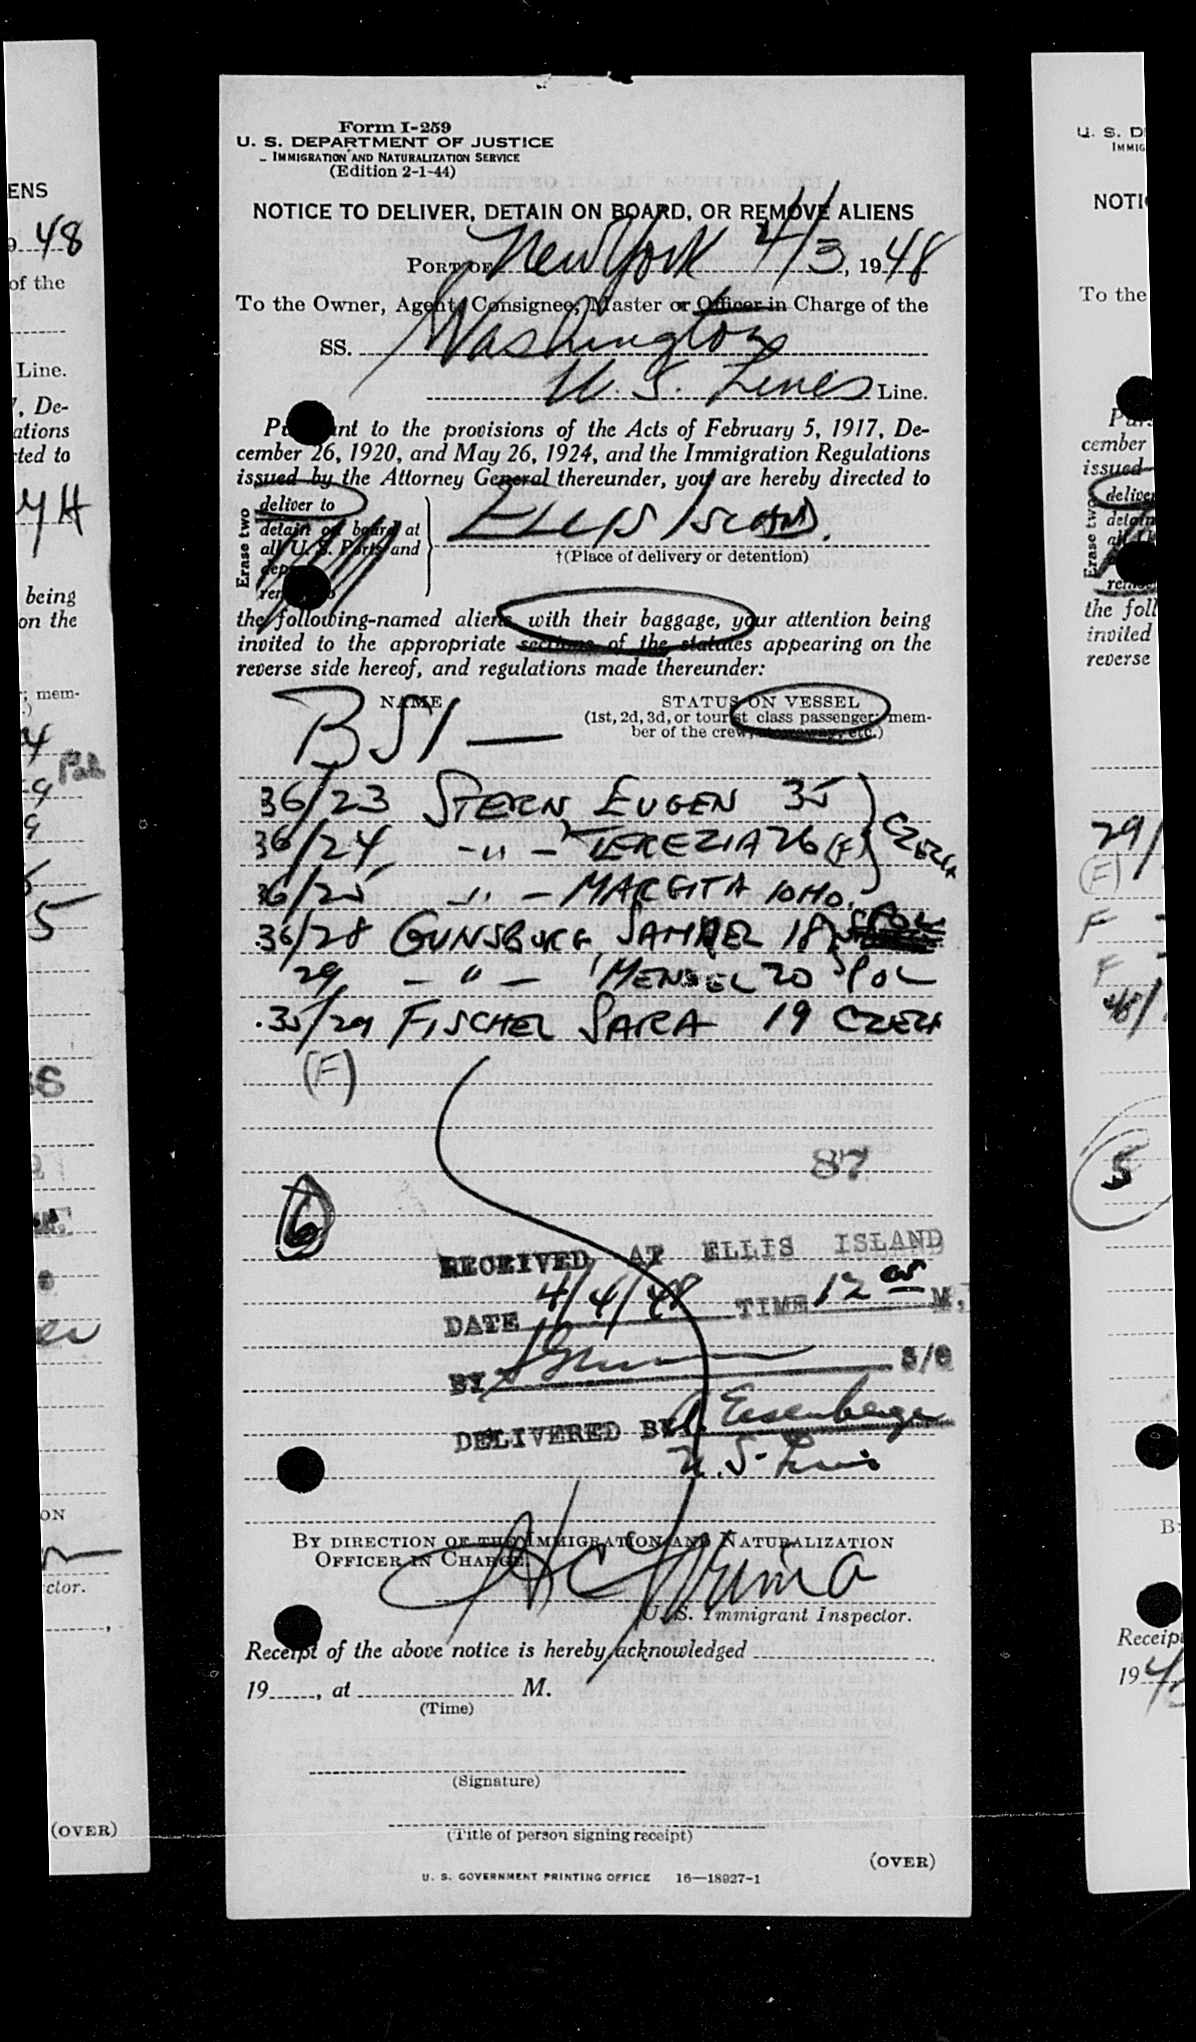 Form I-259
U. S. DEPARTMENT OF JUSTICE
IMMIGRATION AND NATURALIZATION SERVICE
(Edition 2-1-44)
NOTICE TO DELIVER, DETAIN ON BOARD, OR REMOVE ALIENS
PORT OF New York 4/3, 1948
To the Owner, Agent, Consignee, Master or Officer in Charge of the
SS. Washington
U. S. Lines Line.
Pursuant to the provisions of the Acts of February 5, 1917, De-
cember 26, 1920, and May 26, 1924, and the Immigration Regulations
issued by the Attorney General thereunder, you are hereby directed to
Erase two
deliver to
detain on board at
all U. S. Ports and
ELLIS ISLAND.
†(Place of delivery or detention)
the following-named aliens, with their baggage, your attention being
invited to the appropriate sections of the statutes appearing on the
reverse side hereof, and regulations made thereunder:
NAME STATUS ON VESSEL
(1st, 2d, 3d, or tourist class passenger; mem-
ber of the crew, stowaway, etc.)
BSI —
36/23 STERN, EUGEN 35
36/24 -"- TEREZIA 26 (F) CZECH
36/25 -"- MARGITA 10 MO.
36/28 GUNSBURG, SAMUEL 18 POL
29 -"- MENDEL 20 POL
35/29 FISCHER SARA 19 CZECH
(F)
87
6
RECEIVED AT ELLIS ISLAND
DATE 4/4/48 TIME 12 05 M.
BY S/O
DELIVERED BY Eisenberger
U. S. Lines
BY DIRECTION OF THE IMMIGRATION AND NATURALIZATION
OFFICER IN CHARGE.
U. S. Immigrant Inspector.
Receipt of the above notice is hereby acknowledged
19......, at M.
(Time)
(Signature)
(Title of person signing receipt)
(OVER)
U. S. GOVERNMENT PRINTING OFFICE 16—18927-1
ENS
48
of the
Line.
, De-
ations
cted to
being
on the
; mem-
5
ctor.
(OVER)
U. S. D
IMMIG
NOTI
To the
cember
issued
Erase two
the foll
invited
reverse
29/
(F)
F
F
5
Receip
19